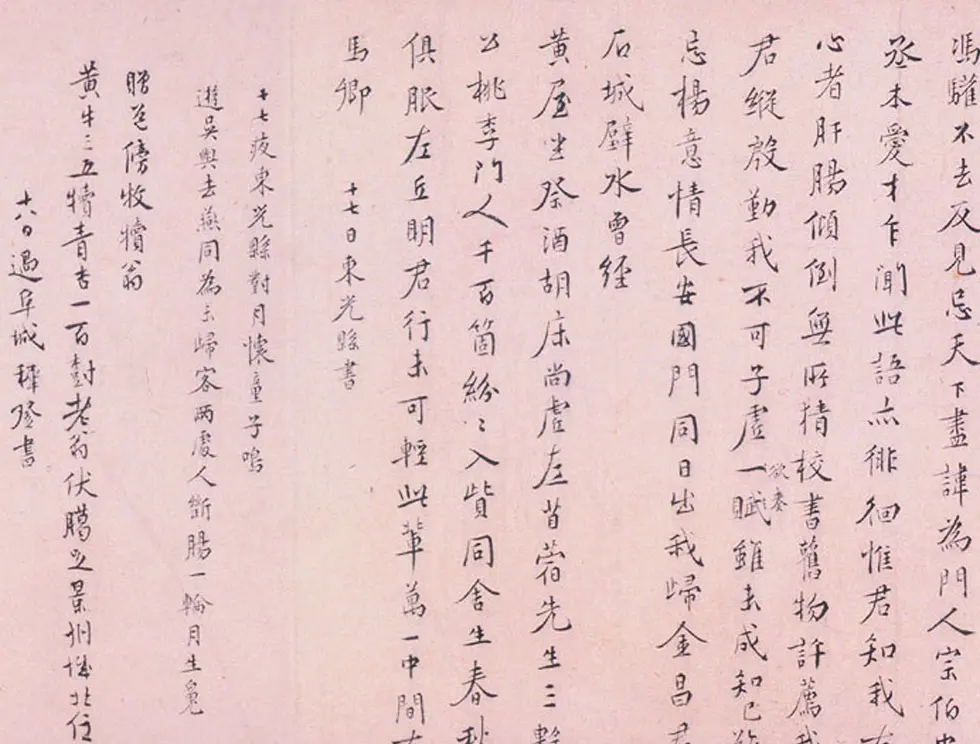 馮驩不去反見忌天下盡諱為門人宗伯
丞本愛才乍聞此語亦徘徊惟君知我
心者肝腸傾倒無所猜校書舊物許薦
君縱殷勤我不可子虛一賦雖未成知己
欲奏
忌楊意情長安國門同日出我歸金昌君
石城壁水曾經
黃屋坐祭酒胡床尚虛左苜蓿先生三
公桃李門人千百箇紛〻入貲同舍生春秋
俱眼左丘明君行未可輕此輩萬一中間
馬卿 十七日東光縣書
十七夜東光縣對月懷童子鳴
遊吳與去燕同為未歸客兩處人斷腸一輪月生魄
贈邑傍牧犢翁
黃牛三五犢青杏一百樹老翁伏臘足景州城北住
十八日過阜城穉登書